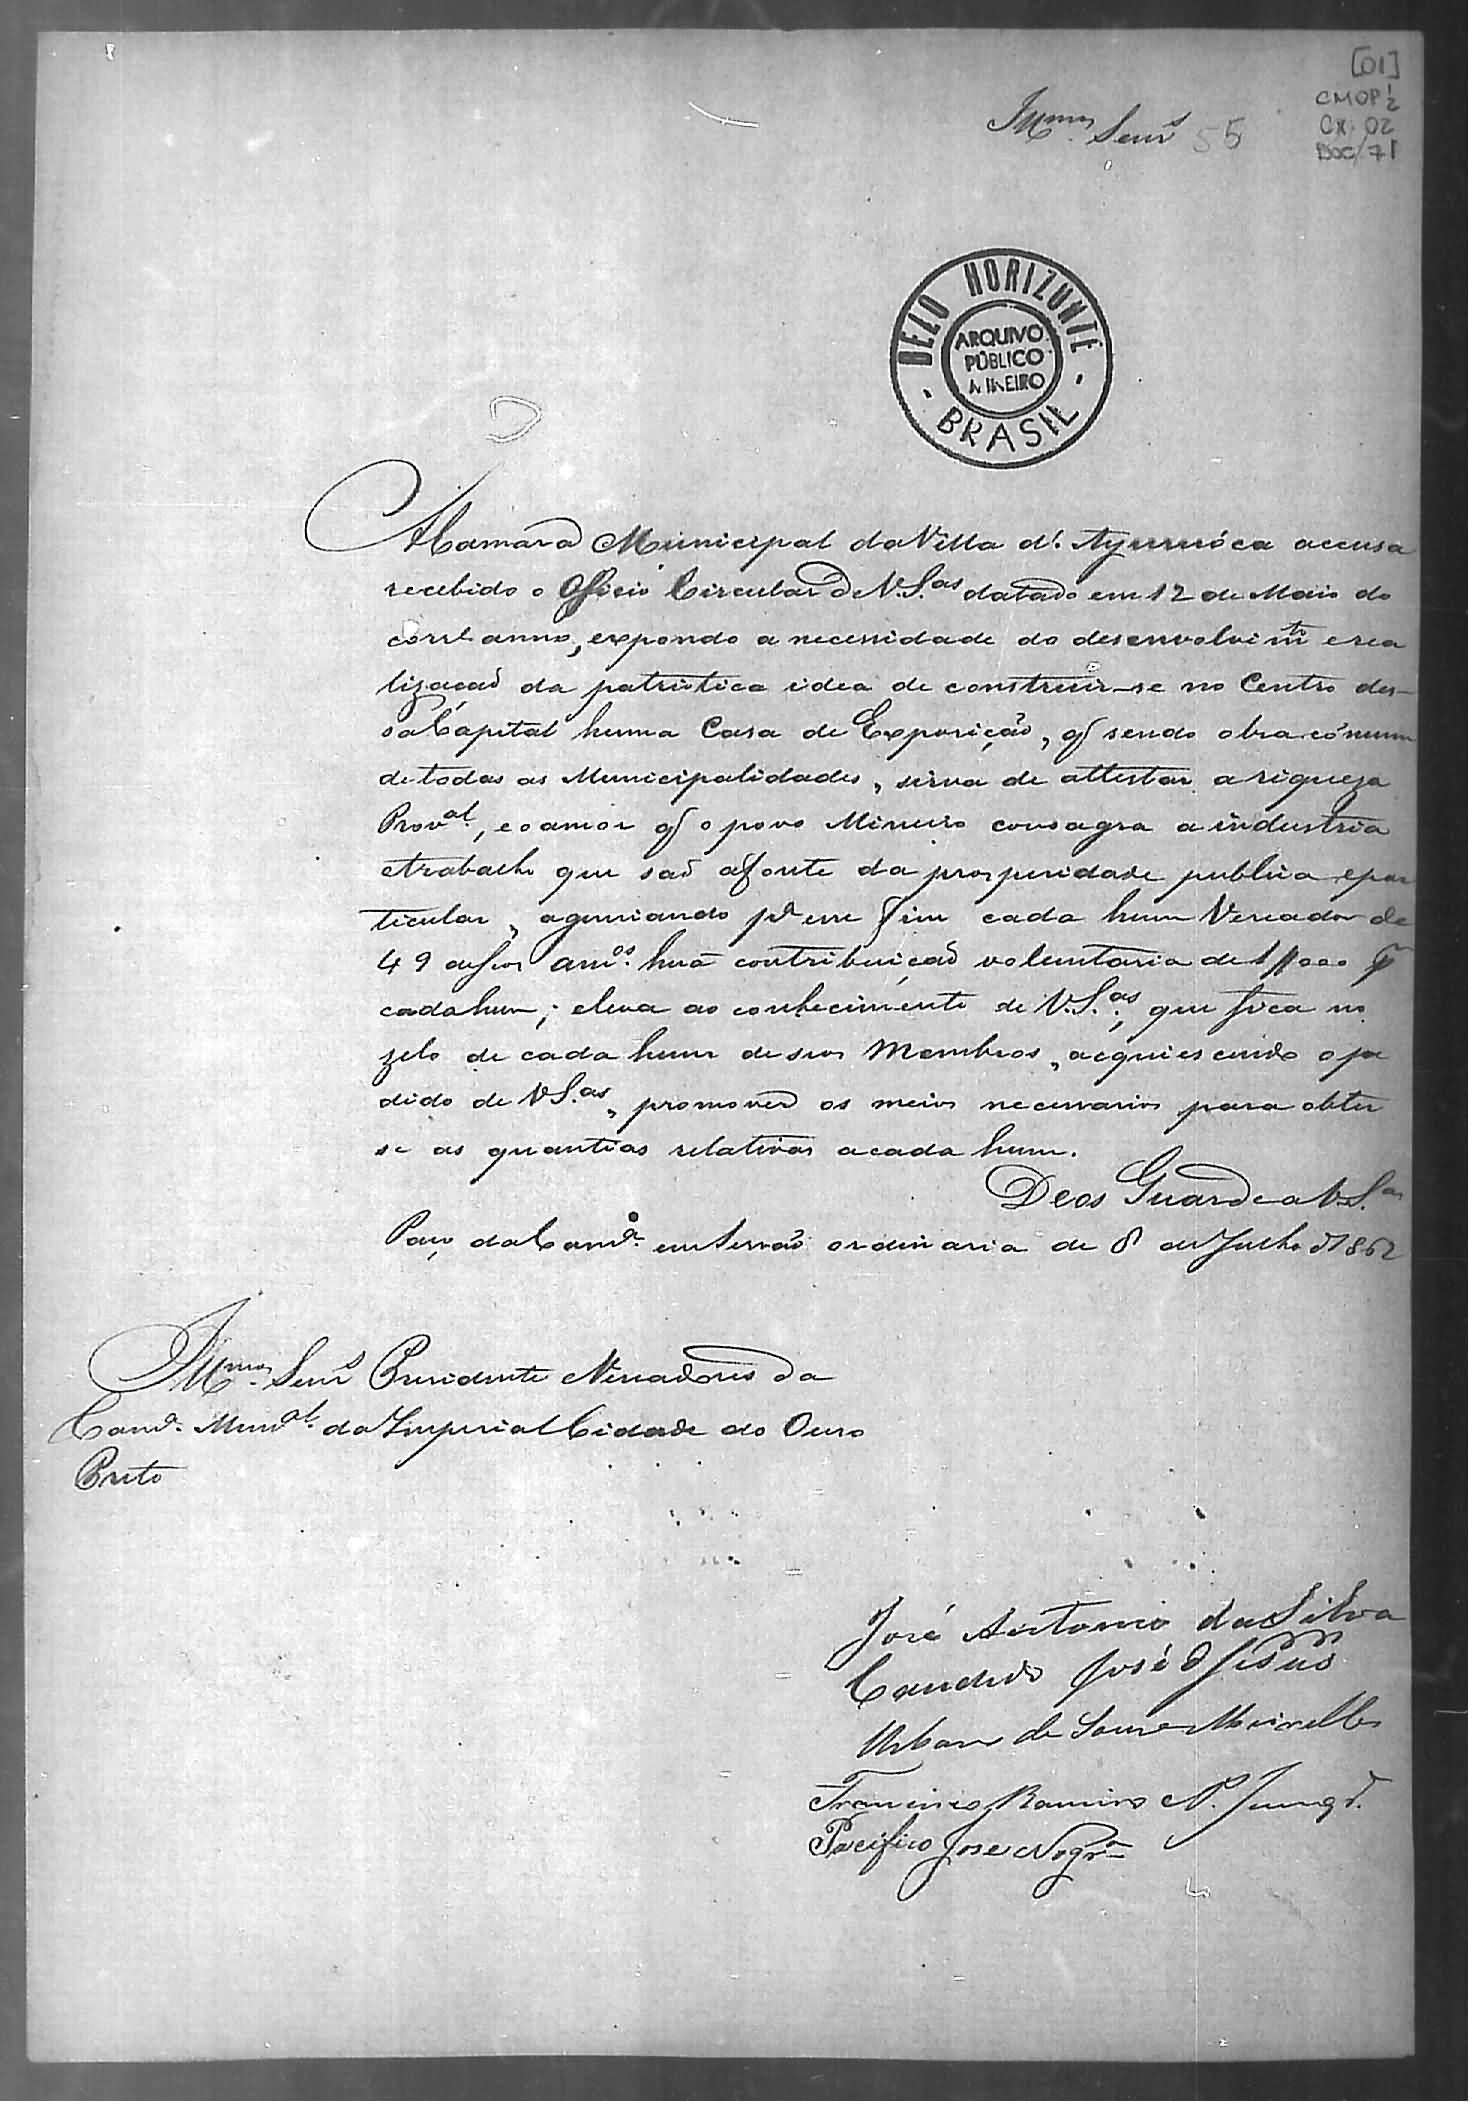 [01]
CMOP 1/2
CX. 02
DOC/71
Illmos. Senrs 55
BELO HORIZONTE
ARQUIVO
PÚBLICO
MINEIRO
BRASIL
A Camara Municipal da Villa d'. Ayuruóca accusa
recebido o Officio Circular de V.S.as datado em 12 de Maio do
corre anno, expondo a necessidade do desenvolvimto e rea
lizaçaõ da patriotica idea de construir-se no Centro des-
sa Capital huma Casa de Exposição, q sendo obra cómum
de todas as Municipalidades, sirva de attestar a riqueza
Proval., e o amor q o povo Mineiro consagra a industria
e trabalho que saõ a fonte da prosperidade publica e par
ticular, agenciando pa esse fim cada hum Vereador de
49 de seos amos. huã contribuiçaõ voluntaria de 1//000 p
cada hum; eleva ao conhecimento de V.S.as; que fica no
zelo de cada hum de seos Membros, acquiescendo o pe
dido de V.S.as, promover os meios necessarios para obter
se as quantias relativas a cada hum.
Deos Guarde a V.S.as
Paço da Camra. em Sessaõ ordinaria de 8 de Julho d 1862
Illmos. Senrs Presidente e Vereadores da
Camra. Munal. da Imperial Cidade do Ouro
Preto
José Antonio da Silva
Candido José d Jesus
Urbano de Souza Meirelles
Francisco Ramiro N.
Pacifico Jose Nogra